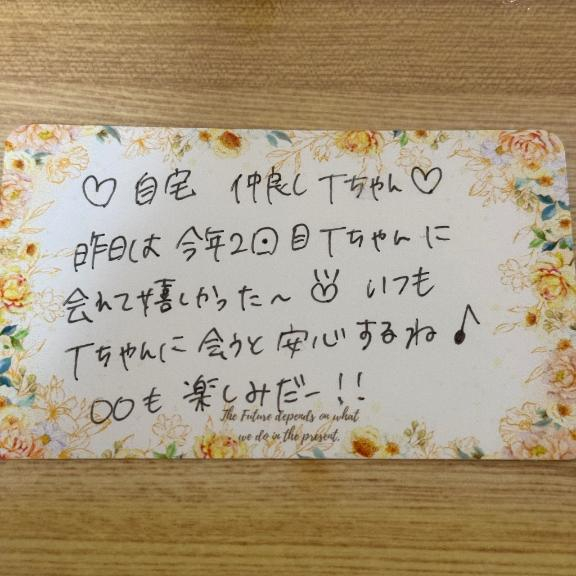 ♡ 自宅 仲良し Tちゃん♡
昨日は 今年2回目 Tちゃんに
会れて嬉しかった〜 いつも
Tちゃんに 会うと 安心するね♪
○○も 楽しみだー!!
The Future depends on what
we do in the present.